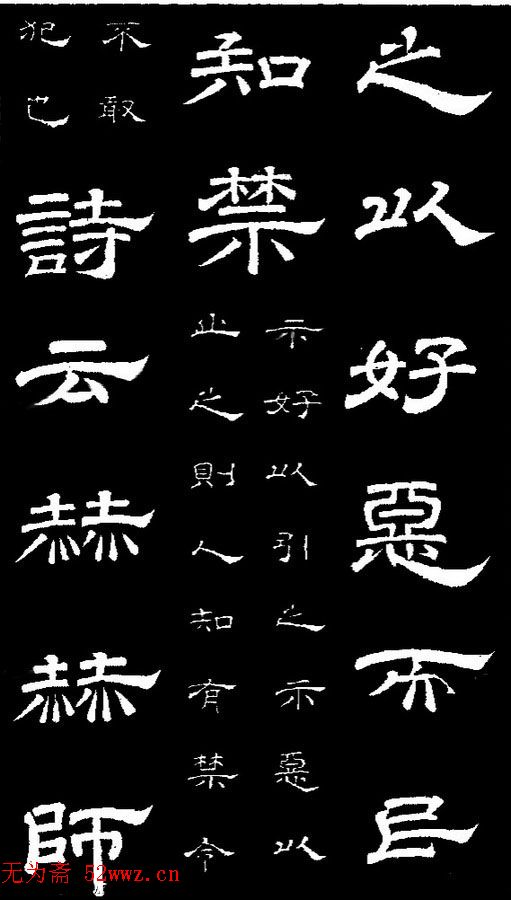 之以好惡而民
知禁
示好以引之示惡以
止之則人知有禁令
不敢
犯也
詩云赫赫師
无为斋 52wwz.cn